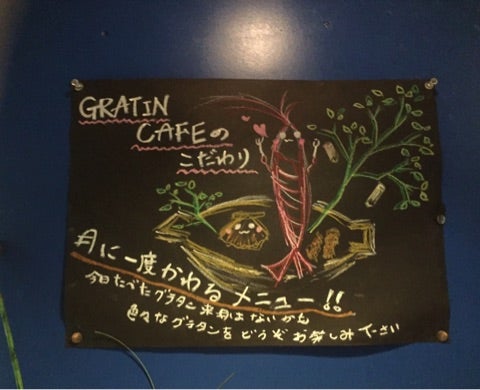 GRATIN
CAFEの
こだわり
月に一度かわるメニュー!!
今日たべたグラタン来月はないかも
色々なグラタンをどうぞお楽しみ下さい